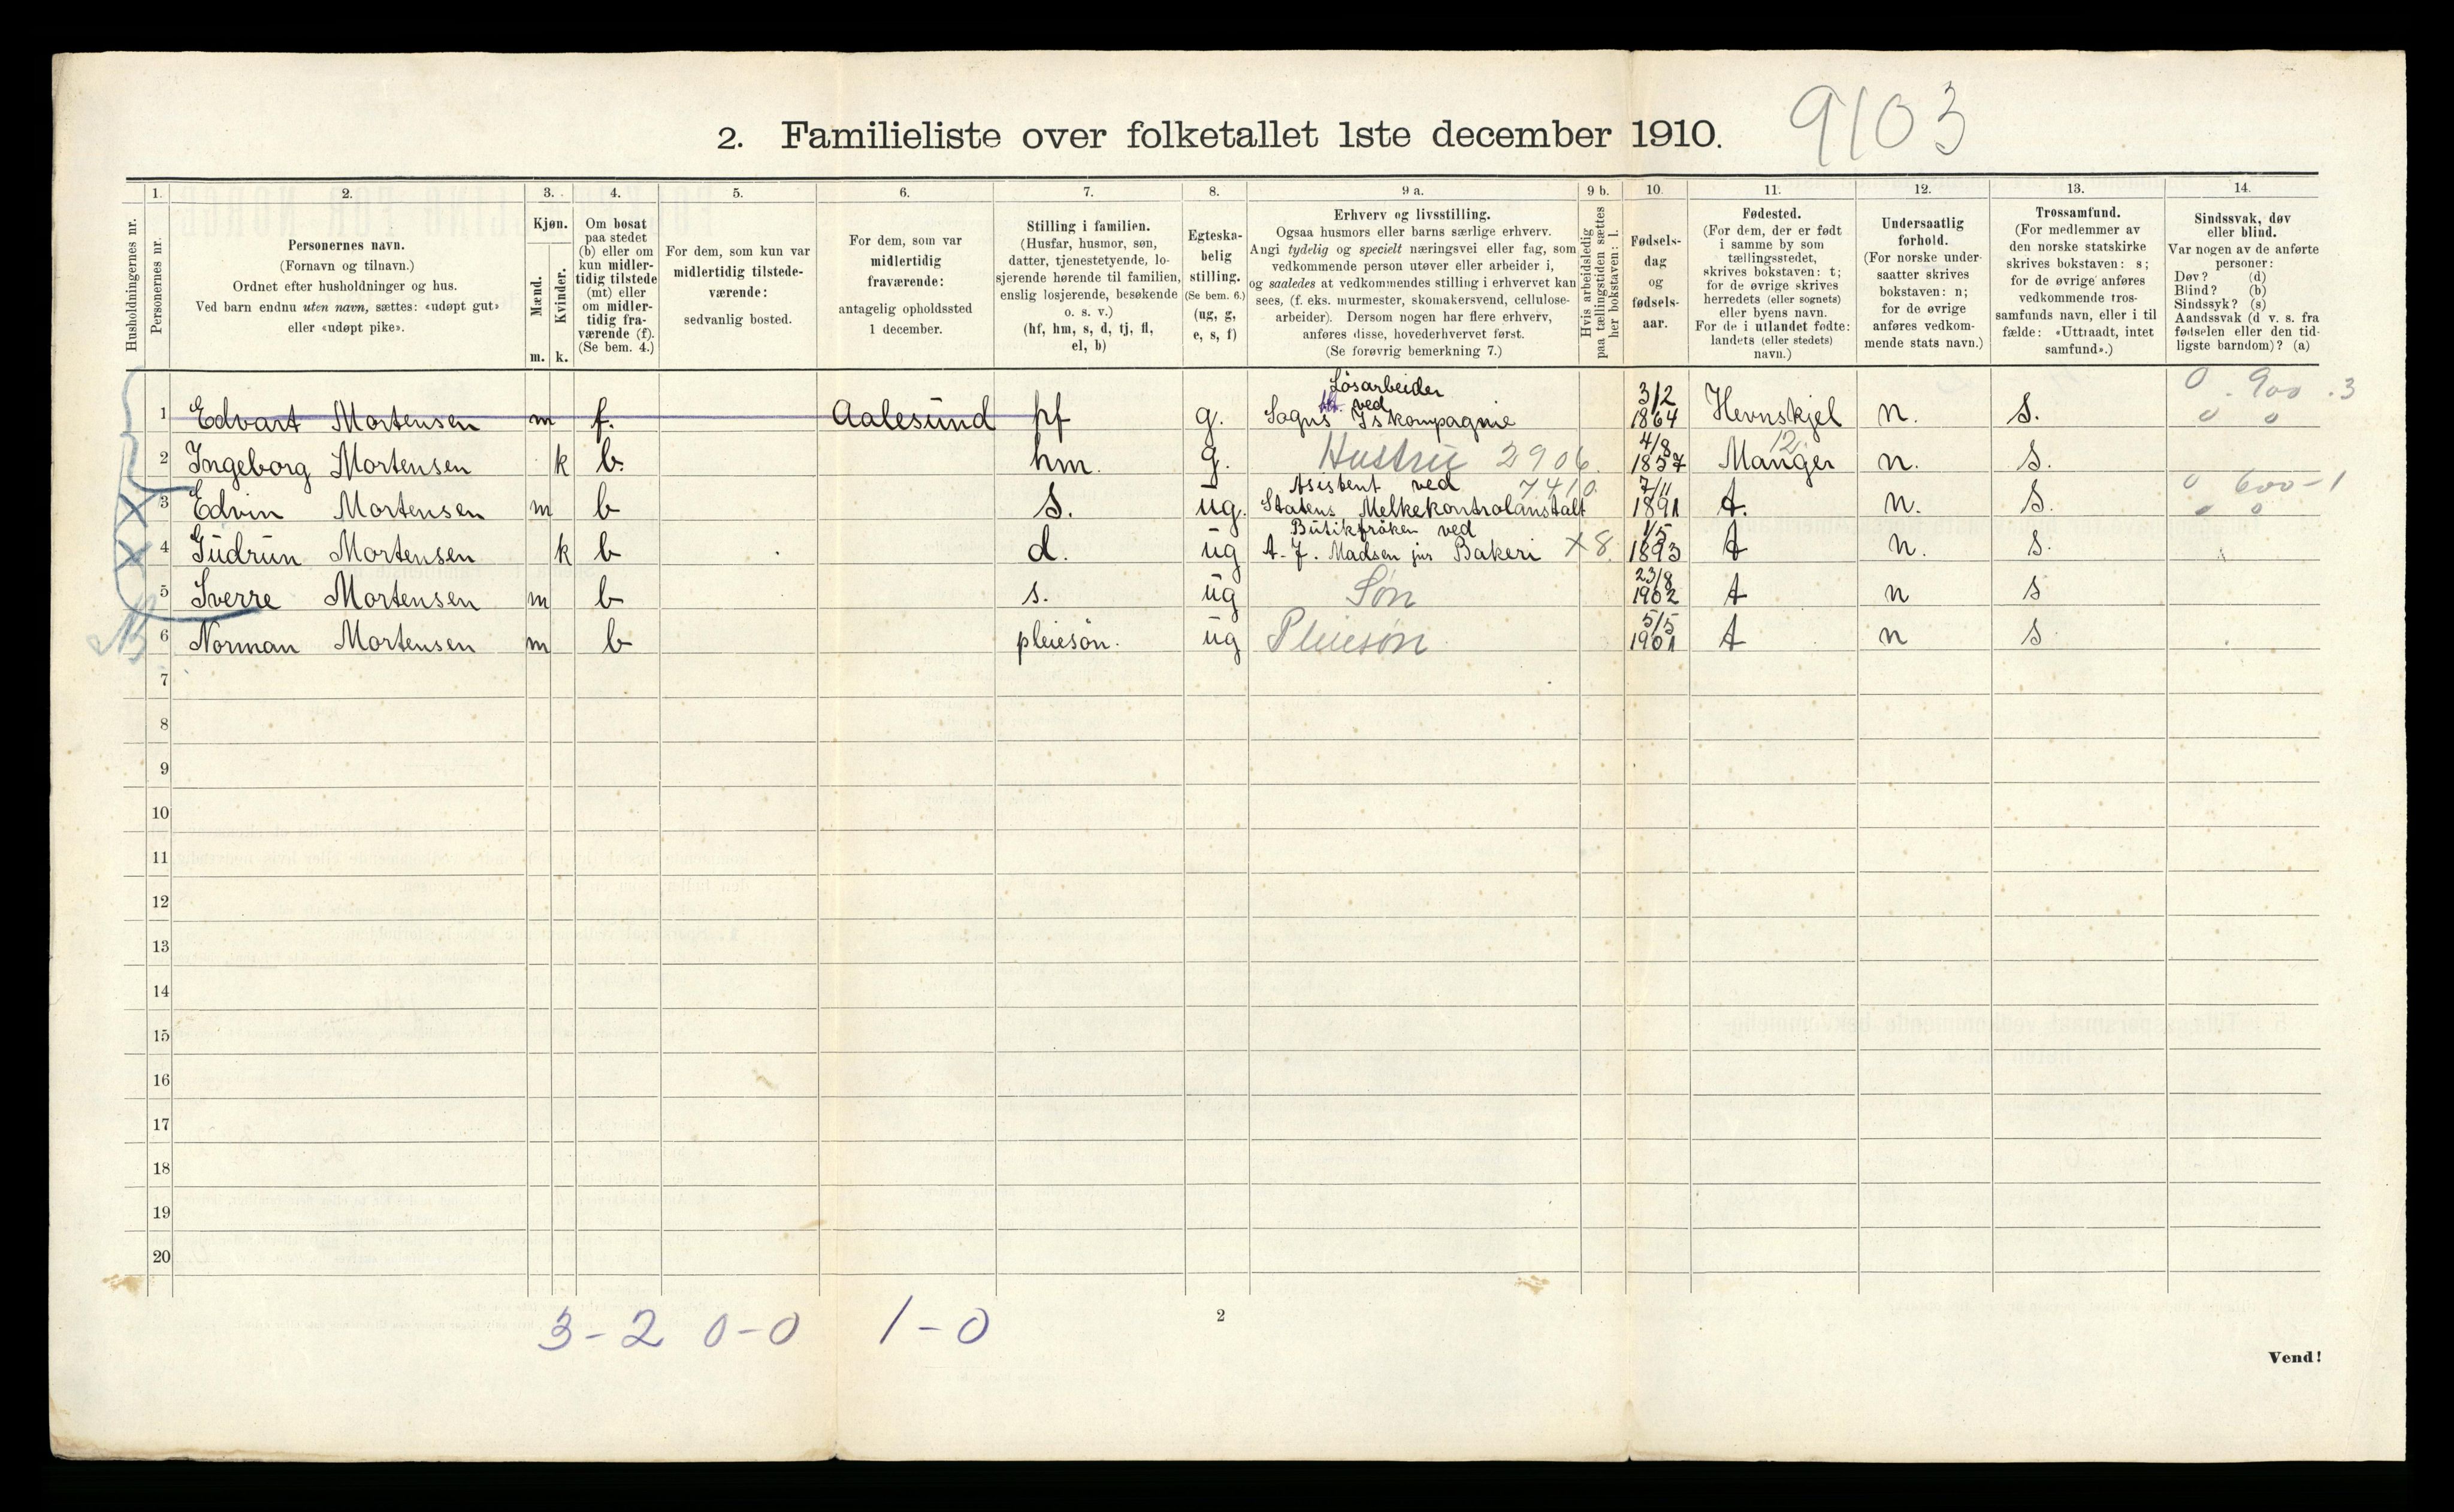 2. Familieliste over folketallet 1ste december 1910. 9103
Husholdningernes nr.
1. Personernes nr.
2. Personernes navn. (Fornavn og tilnavn.) Ordnet efter husholdninger og hus. Ved barn endnu uten navn, sættes: «udøpt gut» eller «udøpt pike».
3. Kjøn. Mænd. m. Kvinder. k.
4. Om bosat paa stedet (b) eller om kun midlertidig tilstede (mt) eller om midlertidig fraværende (f). (Se bem. 4.)
5. For dem, som kun var midlertidig tilstedeværende: sedvanlig bosted.
6. For dem, som var midlertidig fraværende: antagelig opholdssted 1 december.
7. Stilling i familien. (Husfar, husmor, søn, datter, tjenestetyende, losjerende hørende til familien, enslig losjerende, besøkende o. s. v.) (hf, hm, s, d, tj, fl, el, b)
8. Egteskabelig stilling. (Se bem. 6.) (ug, g, e, s, f)
9 a. Erhverv og livsstilling. Ogsaa husmors eller barns særlige erhverv. Angi tydelig og specielt næringsvei eller fag, som vedkommende person utøver eller arbeider i, og saaledes at vedkommendes stilling i erhvervet kan sees, (f. eks. murmester, skomakersvend, cellulosearbeider). Dersom nogen har flere erhverv, anføres disse, hovederhvervet først. (Se forøvrig bemerkning 7.)
9 b. Hvis arbeidsledig paa tællingstiden sættes her bokstaven: l.
10. Fødselsdag og fødselsaar.
11. Fødested. (For dem, der er født i samme by som tællingsstedet, skrives bokstaven: t; for de øvrige skrives herredets (eller sognets) eller byens navn. For de i utlandet fødte: landets (eller stedets) navn.)
12. Undersaatlig forhold. (For norske undersaatter skrives bokstaven: n; for de øvrige anføres vedkommende stats navn.)
13. Trossamfund. (For medlemmer av den norske statskirke skrives bokstaven: s; for de øvrige anføres vedkommende trossamfunds navn, eller i tilfælde: «Uttraadt, intet samfund».)
14. Sindssvak, døv eller blind. Var nogen av de anførte personer: Døv? (d) Blind? (b) Sindssyk? (s) Aandssvak (d v. s. fra fødselen eller den tidligste barndom)? (a)
1 Edvart Mortensen m f. Aalesund hf g. Løsarbeider ved Sogns Iskompagnie 3/2 1864 Hevnskjel n. s. 0 . 900 . 3 0 0
2 Ingeborg Mortensen k b. hm. g. Hustru 2906. 4/8 1857 Manger 12 n. s.
3 Edvin Mortensen m b s. ug. Assistent ved Statens Melkekontrolanstalt 7410. 7/11 1891 t. n. s. 0 600 - 1 0 0
4 Gudrun Mortensen k b d. ug Butikfrøken ved A. J. Madsen jnr Bakeri X 8. 1/5 1893 t n. s.
5 Sverre Mortensen m b s. ug Søn 23/8 1902 t n s
6 Norman Mortensen m b pleiesøn. ug Pleiesøn 5/5 1901 t n s
7
8
9
10
11
12
13
14
15
16
17
18
19
20
3 - 2 0 - 0 1 - 0
2
Vend!